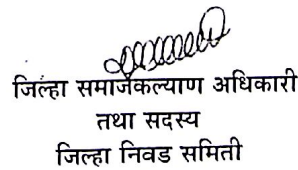 जिल्हा समाजकल्याण अधिकारी
तथा सदस्य
जिल्हा निवड समिती